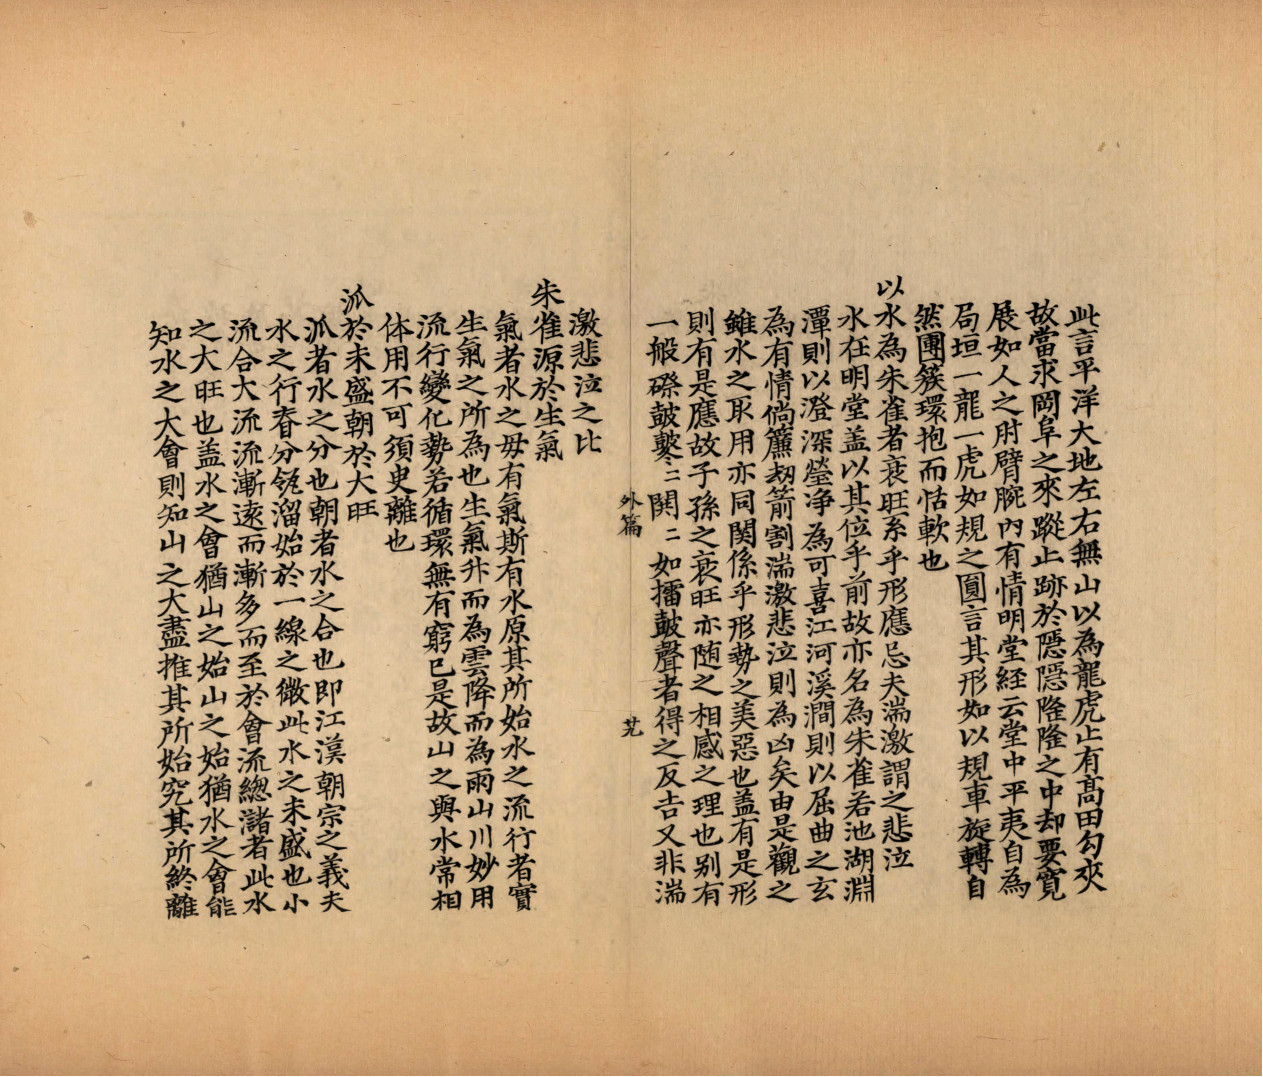 此言平洋大地左右無山以為龍虎止有高田勾夾
故當求岡阜之來蹤止跡於隱隱隆隆之中却要寬
展如人之肘臂腕內有情明堂経云堂中平夷自為
局垣一龍一虎如規之圓言其形如以規車旋轉自
然團簇環抱而恬軟也
以水為朱雀者衰旺系乎形應忌夫湍激謂之悲泣
水在明堂盖以其位乎前故亦名為朱雀若池湖淵
潭則以澄深瑩净為可喜江河溪澗則以屈曲之玄
為有情倘簾刼箭割湍激悲泣則為凶矣由是觀之
雖水之取用亦同関係乎形勢之美惡也盖有是形
則有是應故子孫之衰旺亦随之相感之理也别有
一般磜皷鼕〻閧〻如擂皷聲者得之反吉又非湍
外篇
艽
激悲泣之比
朱雀源於生氣
氣者水之母有氣斯有水原其所始水之流行者實
生氣之所為也生氣升而為雲降而為雨山川妙用
流行變化勢若循環無有窮已是故山之與水常相
体用不可須臾離也
派於未盛朝於大旺
派者水之分也朝者水之合也即江漢朝宗之義夫
水之行脊分瓴溜始於一線之微此水之未盛也小
流合大流流漸遠而漸多而至於會流總瀦者此水
之大旺也盖水之會猶山之始山之始猶水之會能
知水之大會則知山之大盡推其所始究其所終離